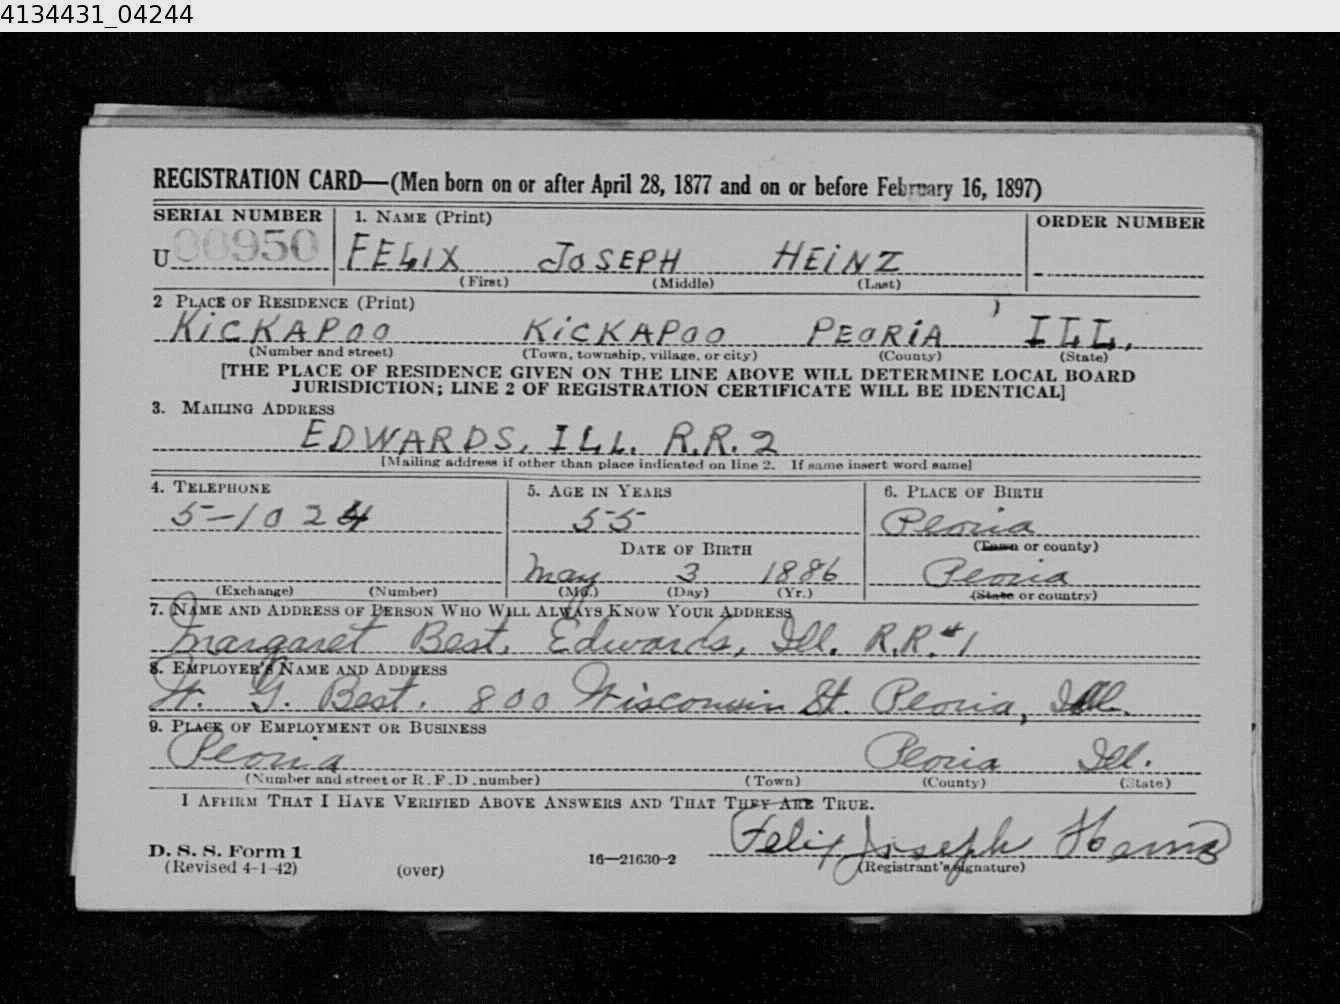 4134431_04244
REGISTRATION CARD—(Men born on or after April 28, 1877 and on or before February 16, 1897)
SERIAL NUMBER 1. NAME (Print) ORDER NUMBER
U 00950 FELIX JOSEPH HEINZ
(First) (Middle) (Last)
2 PLACE OF RESIDENCE (Print)
KICKAPOO KICKAPOO PEORIA ILL.
(Number and street) (Town, township, village, or city) (County) (State)
[THE PLACE OF RESIDENCE GIVEN ON THE LINE ABOVE WILL DETERMINE LOCAL BOARD
JURISDICTION; LINE 2 OF REGISTRATION CERTIFICATE WILL BE IDENTICAL]
3. MAILING ADDRESS
EDWARDS, ILL. R.R. 2
[Mailing address if other than place indicated on line 2. If same insert word same]
4. TELEPHONE 5. AGE IN YEARS 6. PLACE OF BIRTH
5-1024 55 Peoria
(Town or county)
DATE OF BIRTH
May 3 1886 Peoria
(Exchange) (Number) (Mo.) (Day) (Yr.) (State or country)
7. NAME AND ADDRESS OF PERSON WHO WILL ALWAYS KNOW YOUR ADDRESS
Margaret Best, Edwards, Ill. R.R. #1
8. EMPLOYER'S NAME AND ADDRESS
W. G. Best. 800 Wisconsin St. Peoria, Ill.
9. PLACE OF EMPLOYMENT OR BUSINESS
Peoria Peoria Ill.
(Number and street or R. F. D. number) (Town) (County) (State)
I AFFIRM THAT I HAVE VERIFIED ABOVE ANSWERS AND THAT THEY ARE TRUE.
Felix Joseph Heinz
D. S. S. Form 1
(Revised 4-1-42) (over) 16—21630-2 (Registrant's signature)